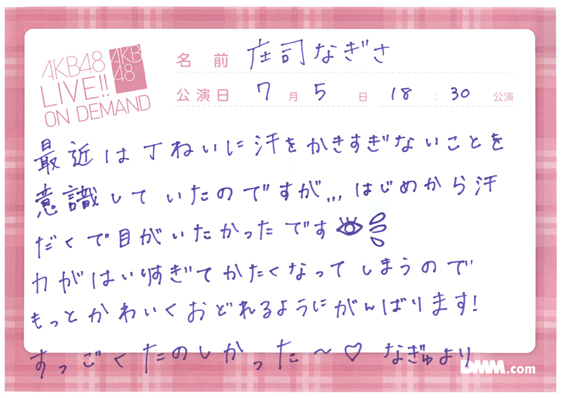 AKB48
LIVE!!
ON DEMAND
AKB
48
名前 庄司なぎさ
公演日 7月5日 18:30公演
最近は丁ねいに汗をかきすぎないことを
意識していたのですが,,,はじめから汗
だくで目がいたかったです
力がはいりすぎてかたくなってしまうので
もっとかわいくおどれるようにがんばります!
すっごくたのしかった〜♡ なぎゅより
DMM.com